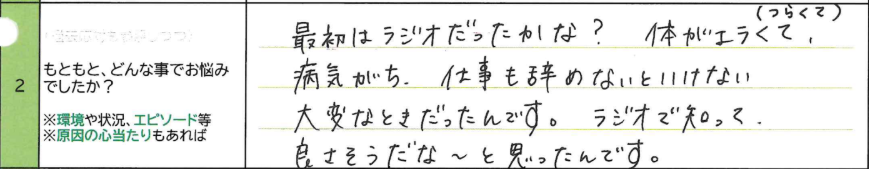 2
もともと、どんな事でお悩み
でしたか？
※環境や状況、エピソード等
※原因の心当たりもあれば
(つらくて)
最初はラジオだったかな？ 体がエラくて、
病気がち. 仕事も辞めないといけない
大変なときだったんです。 ラジオで知って.
良さそうだな〜と思ったんです。